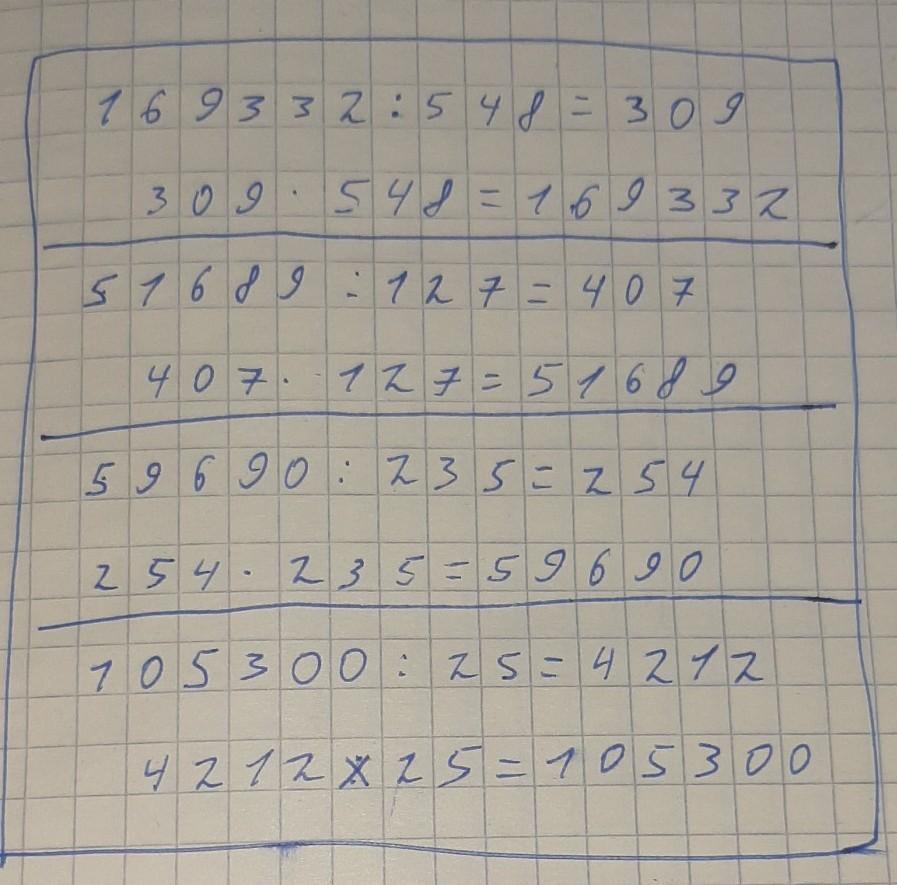 169332:548=309
309·548=169332
51689:127=407
407·127=51689
59690:235=254
254·235=59690
105300:25=4212
4212x25=105300